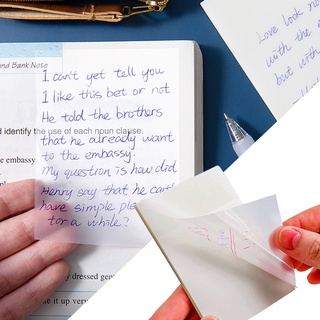 and Bank Note
I can't yet tell you
I like this bet or not
He told the brothers
d identify the use of each noun clause.
that he already want
to the embassy.
he embassy
My question is how did
Henry say that he can't
have simple ple
for a while?
y dressed gent
me it up very
Love look no
with the
but with